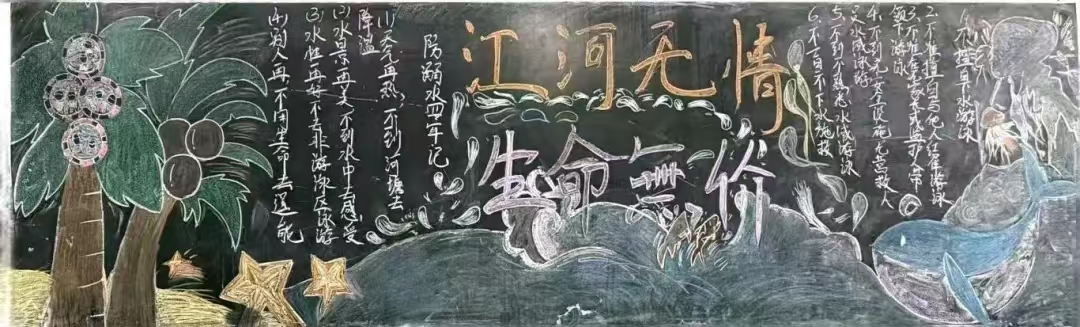 江河无情
生命無价
防溺水四牢记
(1)天气再热,不到河塘去
降温
(2)水景再美不到水中去感受
(3)水性再好不去非游泳区游
(4)别人再不用生命去逞能
1.不擅自下水游泳
2.不准擅自与他人结伴游泳
3.不准在无家长或监护带
领下游泳
4.不到无安全设施无营救人
员水域游泳
5.不到不熟悉水域游泳
6.不盲目下水施救